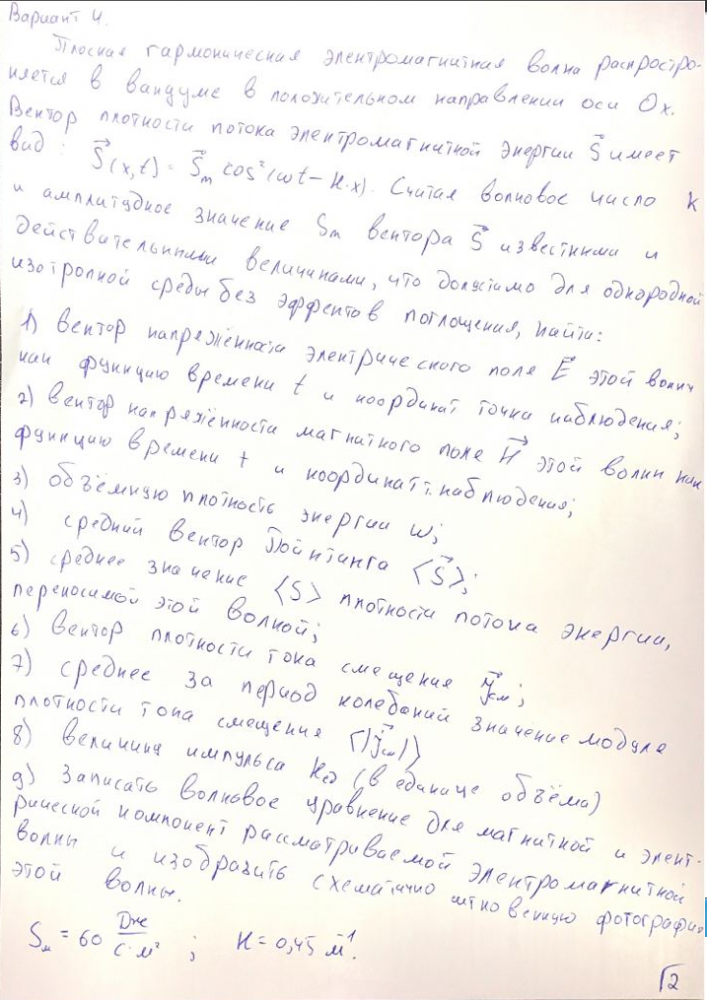 Вариант 4.
Плоская гармоническая электромагнитная волна распростра-
няется в вакууме в положительном направлении оси Ox.
Вектор плотности потока электромагнитной энергии S⃗ имеет
вид: S⃗(x,t) = S⃗m cos²(ωt – k·x). Считая волновое число k
и амплитудное значение Sm вектора S⃗ известными и
действительными величинами, что допустимо для однородной
изотропной среды без эффектов поглощения, найти:
1) вектор напряжённости электрического поле E⃗ этой волны
как функцию времени t и координат точки наблюдения;
2) вектор напряжённости магнитного поле H⃗ этой волны как
функцию времени t и координат т. наблюдения;
3) объёмную плотность энергии w;
4) средний вектор Пойнтинга <S⃗>;
5) среднее значение <S> плотности потока энергии,
переносимой этой волной;
6) вектор плотности тока смещения j⃗см;
7) среднее за период колебаний значение модуля
плотности тока смещения <|j⃗см|>
8) величину импульса (в единице объёма)
9) Записать волновое уравнение для магнитной и элект-
рической компонент рассматриваемой электромагнитной
волны и изобразить схематично мгновенную фотографию
этой волны.
Sm = 60 Дж/(с·м²) ; k = 0,45 м⁻¹.
√2